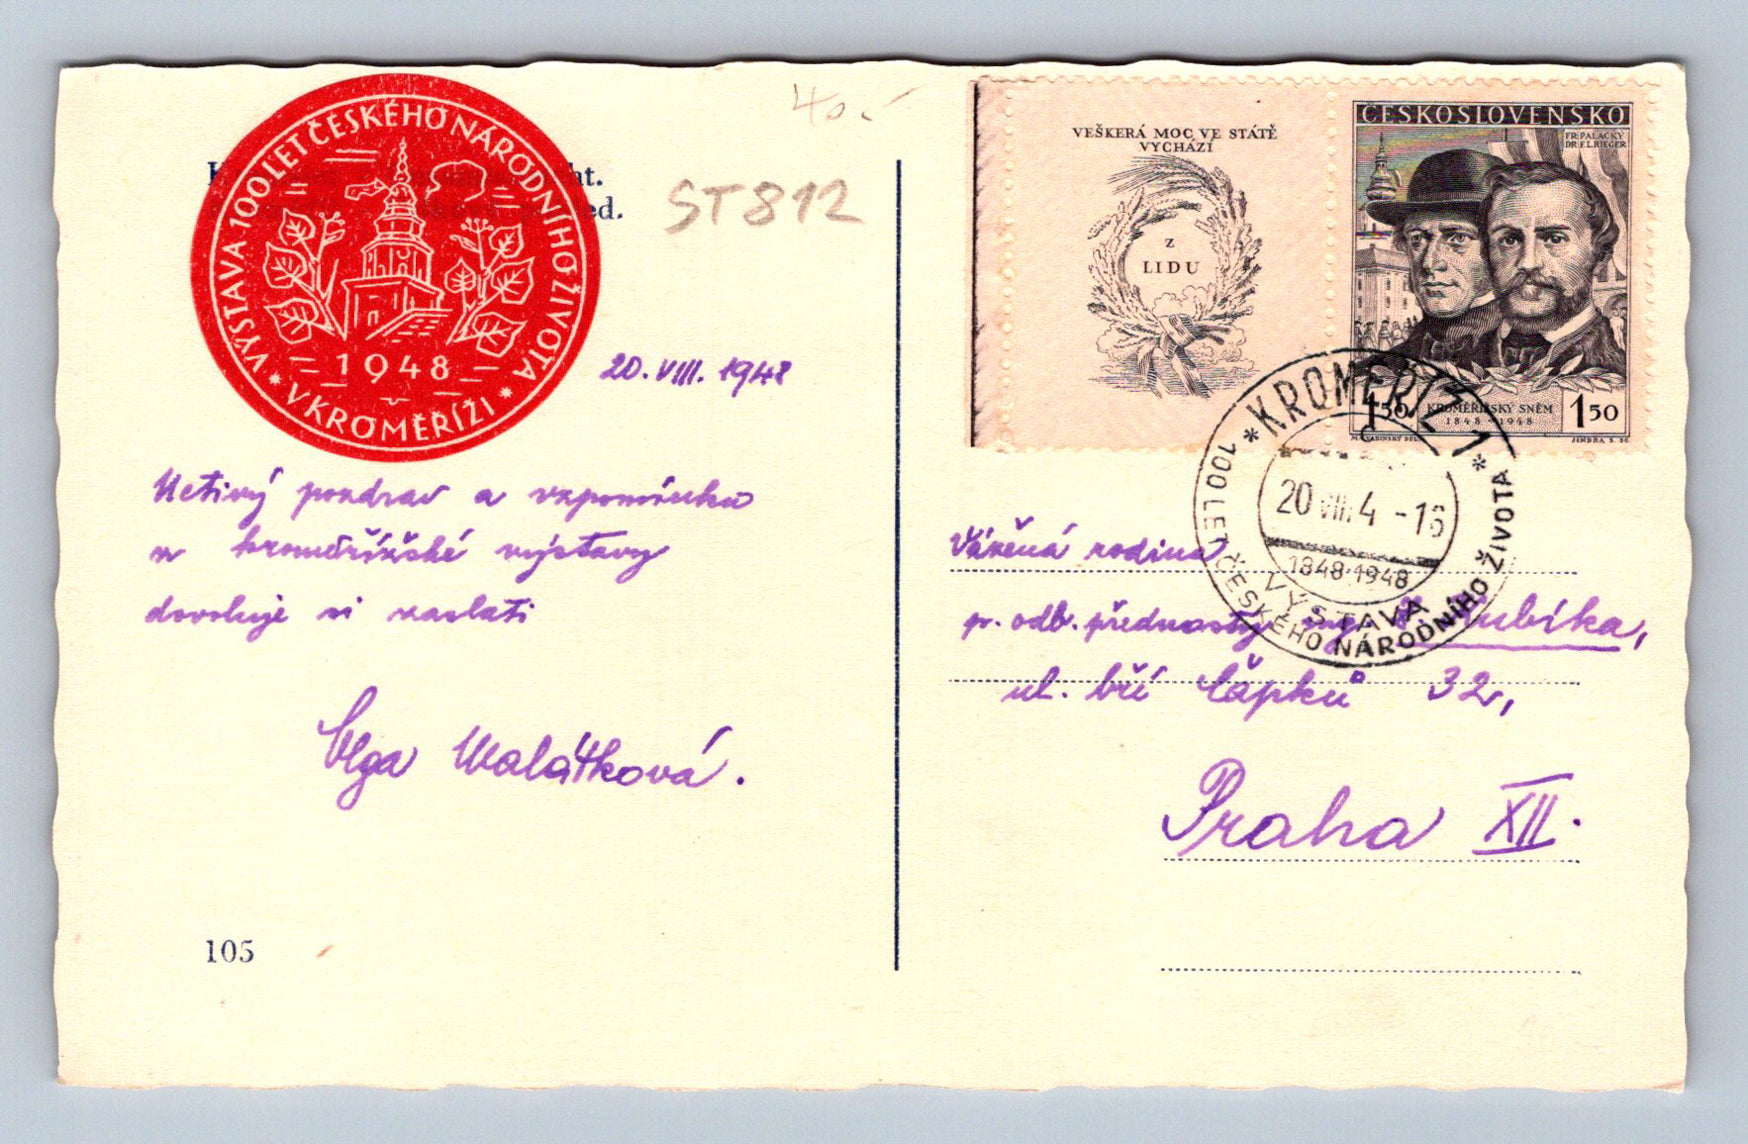 VÝSTAVA 100 LET ČESKÉHO NÁRODNÍHO ŽIVOTA
* V KROMĚŘÍŽI *
1948
nt.
ed.
40.-
ST 812
20. VIII. 1948
Uctivý pozdrav a vzpomínku
z kroměřížské výstavy
dovoluje si zaslati
Olga Malátková.
105
VEŠKERÁ MOC VE STÁTĚ
VYCHÁZÍ
Z
LIDU
ČESKOSLOVENSKO
FR. PALACKÝ
DR. F. L. RIEGER
1 50
KROMĚŘÍŽSKÝ SNĚM
1848 - 1948
1 50
JINDRA S. SC
* KROMĚŘÍŽ 1 *
20 VIII. 4 - 16
1848-1948
VÝSTAVA
100 LET ČESKÉHO NÁRODNÍHO ŽIVOTA
Vážená rodina
p. odb. přednosty ing.
ul. bří Čapků 32,
Praha XII.